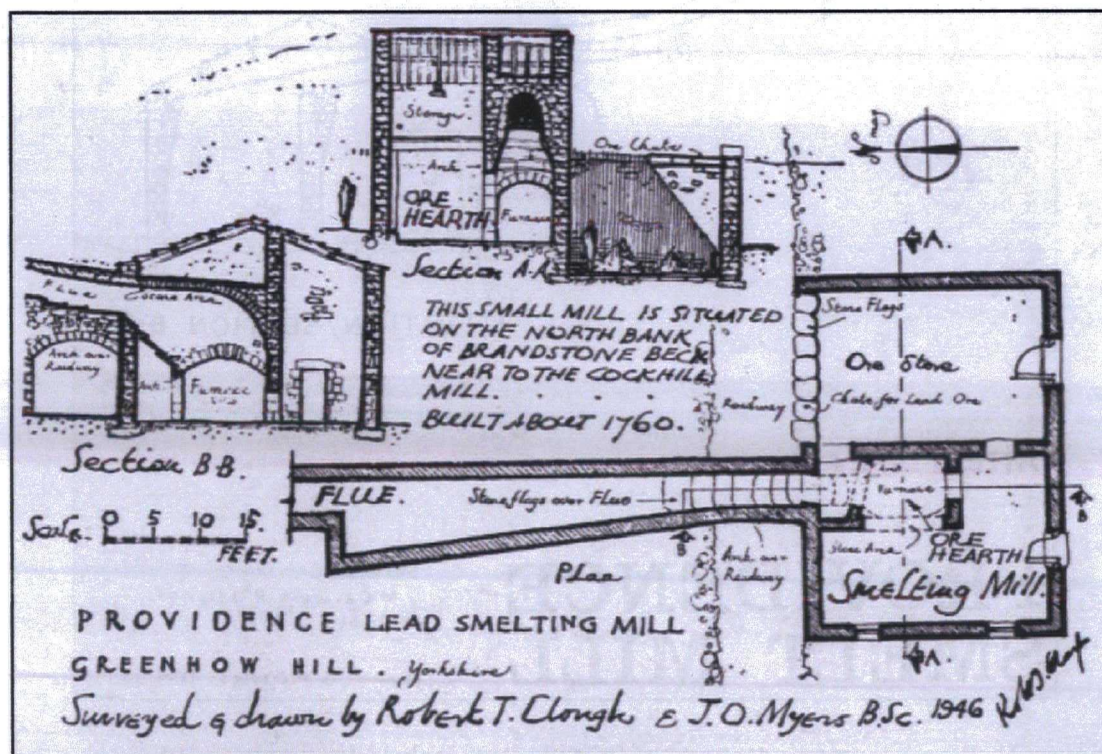 Storage
Ore Chute
Arch
ORE
HEARTH
Furnace
Section A.A.
FLUE
Arch over
Railway
Arch
Furnace
Section B.B.
THIS SMALL MILL IS SITUATED
ON THE NORTH BANK
OF BRANDSTONE BECK
NEAR TO THE COCKHILL
MILL.
BUILT ABOUT 1760.
A.
Stone Flags
Ore Store
Chute for Lead Ore
Roadway
FLUE.
Stone flags over Flue
Arch
Furnace
B
B
ORE
HEARTH
Store Area
Arch over
Railway
Scale
0 5 10 15.
FEET.
Plan
Smelting Mill.
A.
PROVIDENCE LEAD SMELTING MILL
GREENHOW HILL. Yorkshire
Surveyed & drawn by Robert T. Clough & J.O. Myers B.Sc. 1946